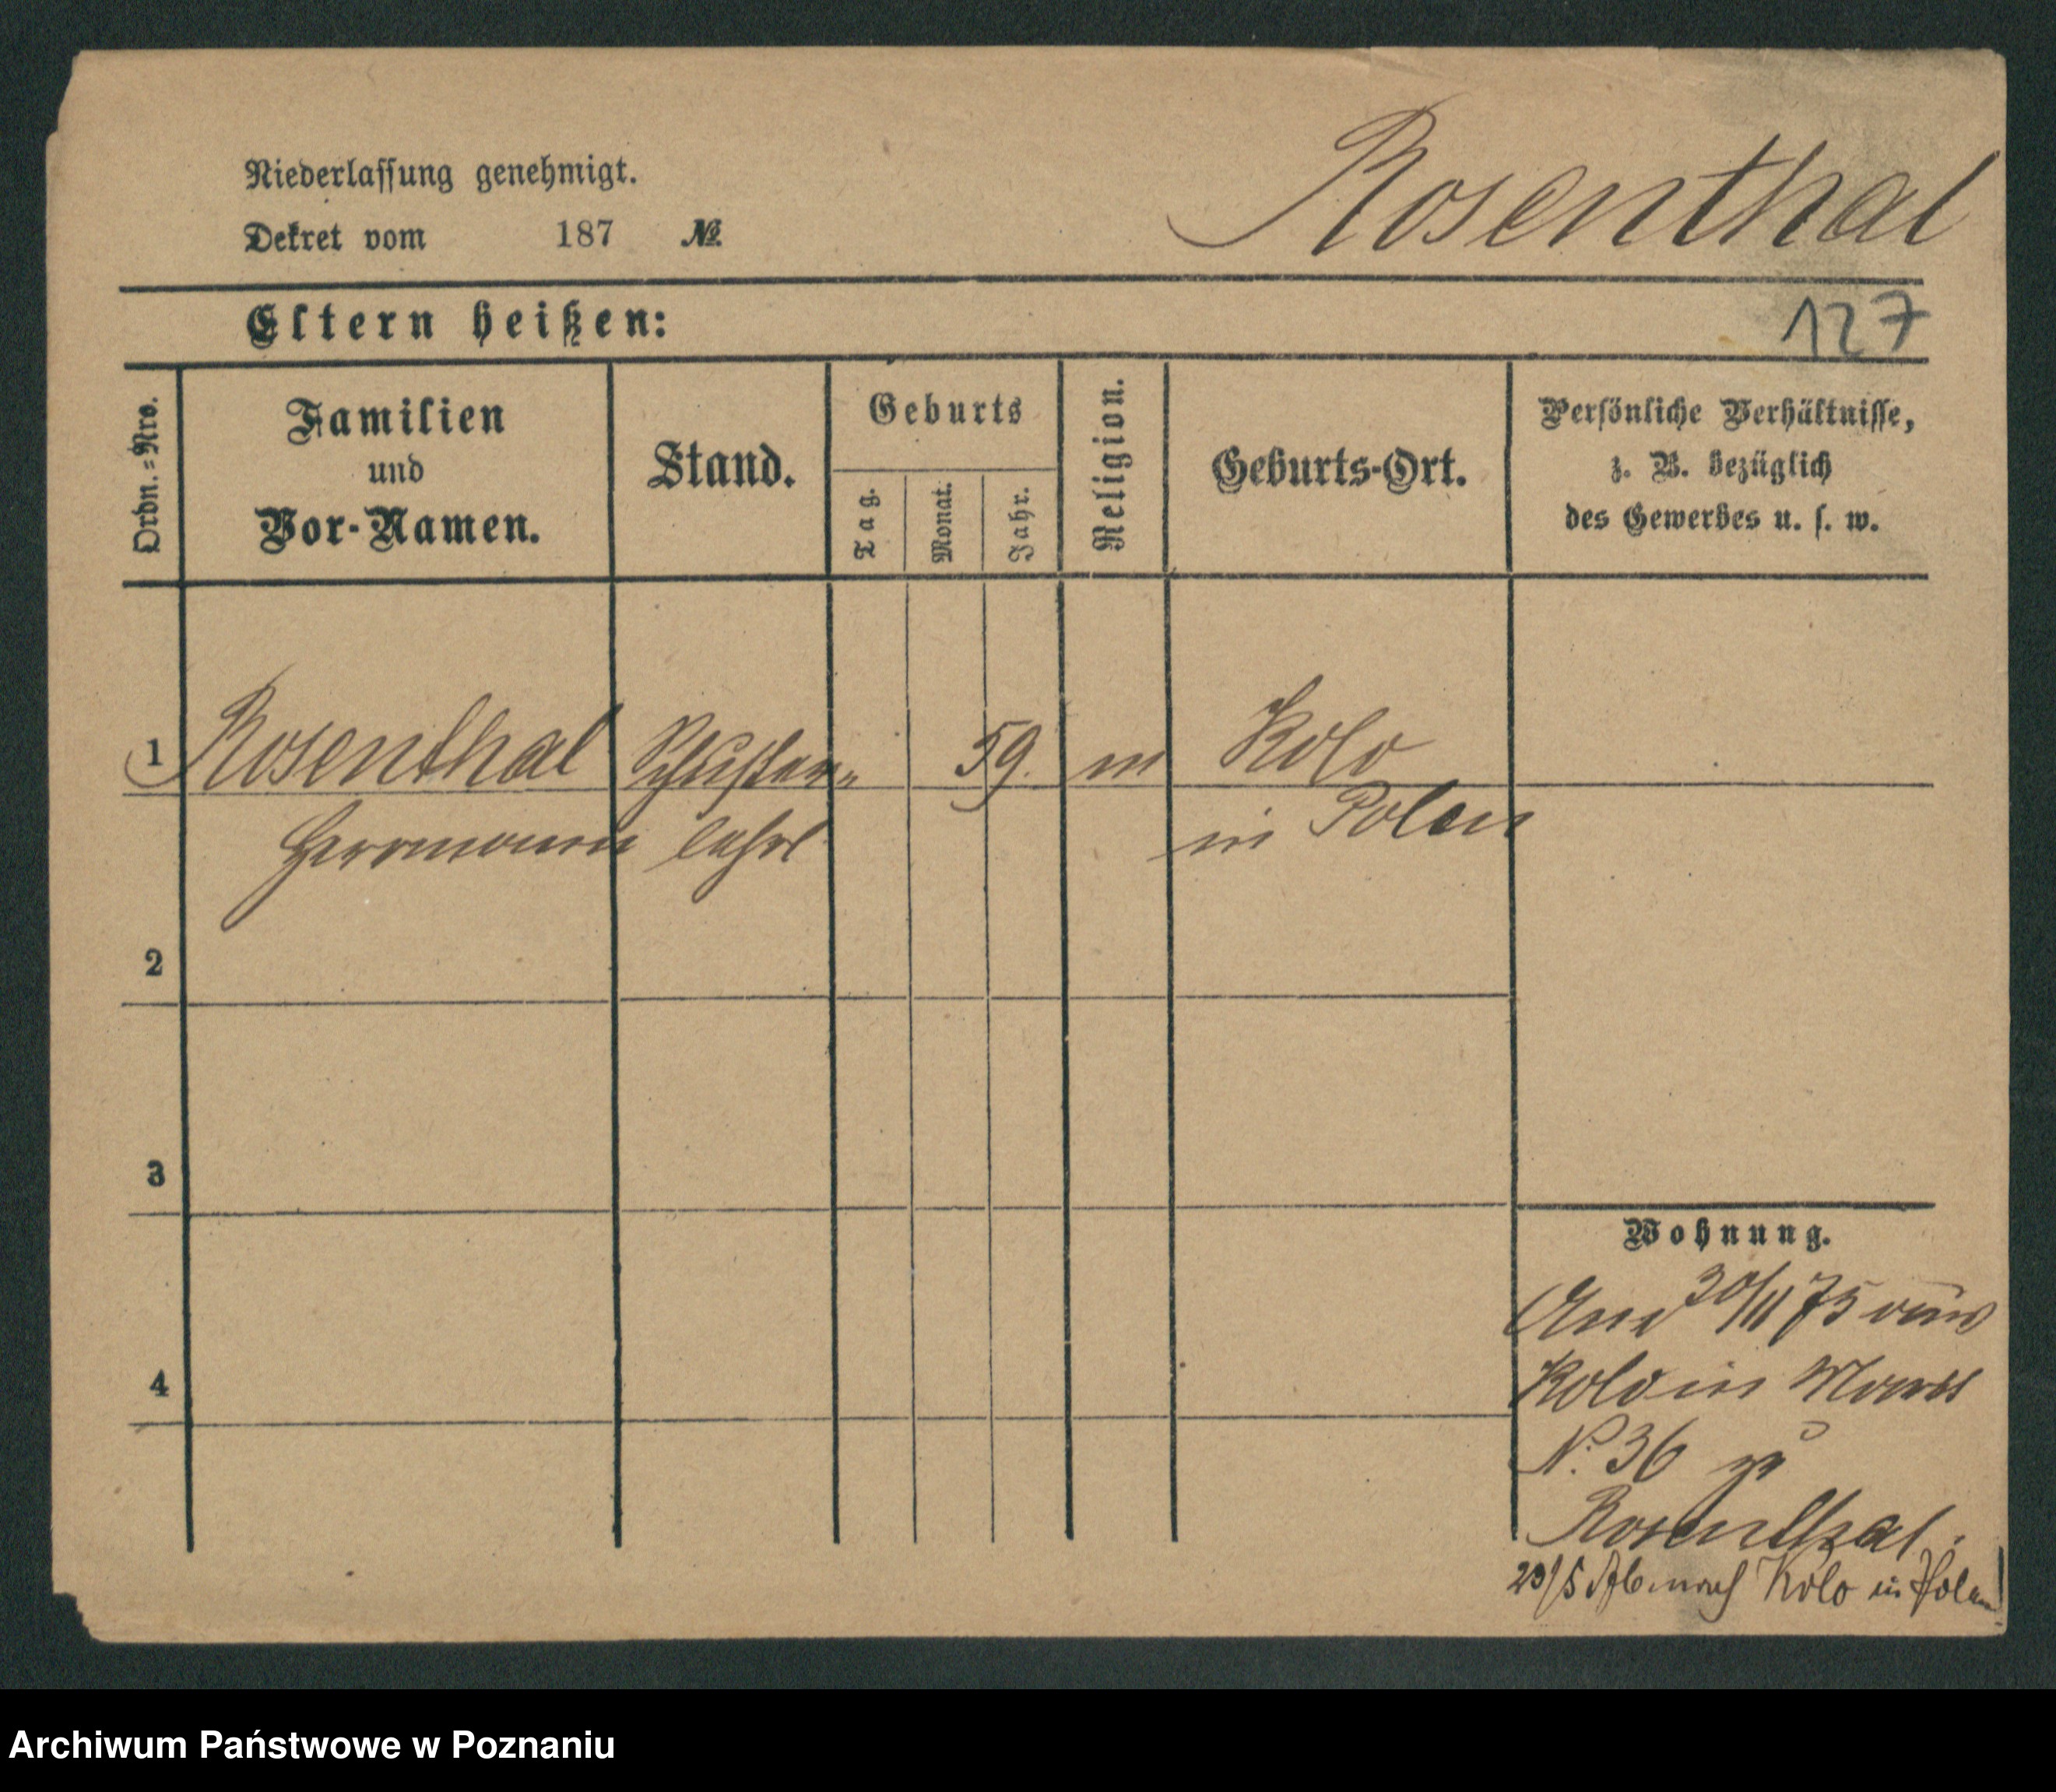 Niederlassung genehmigt.
Dekret vom 187 №
Rosenthal
Eltern heißen:
127
Ordn.=Nro.
Familien
und
Vor-Namen.
Stand.
Geburts
Tag.
Monat.
Jahr.
Religion.
Geburts-Ort.
Persönliche Verhältnisse,
z. B. bezüglich
des Gewerbes u. s. w.
1 Rosenthal Schuster= 59. m Kolo
Herrmann lehrl in Polen
2
3
4
Wohnung.
30/11 75 aus
Kolo in
N. 36 zu
Rosenthal.
29/5 Ab nach Kolo in Polen
Archiwum Państwowe w Poznaniu